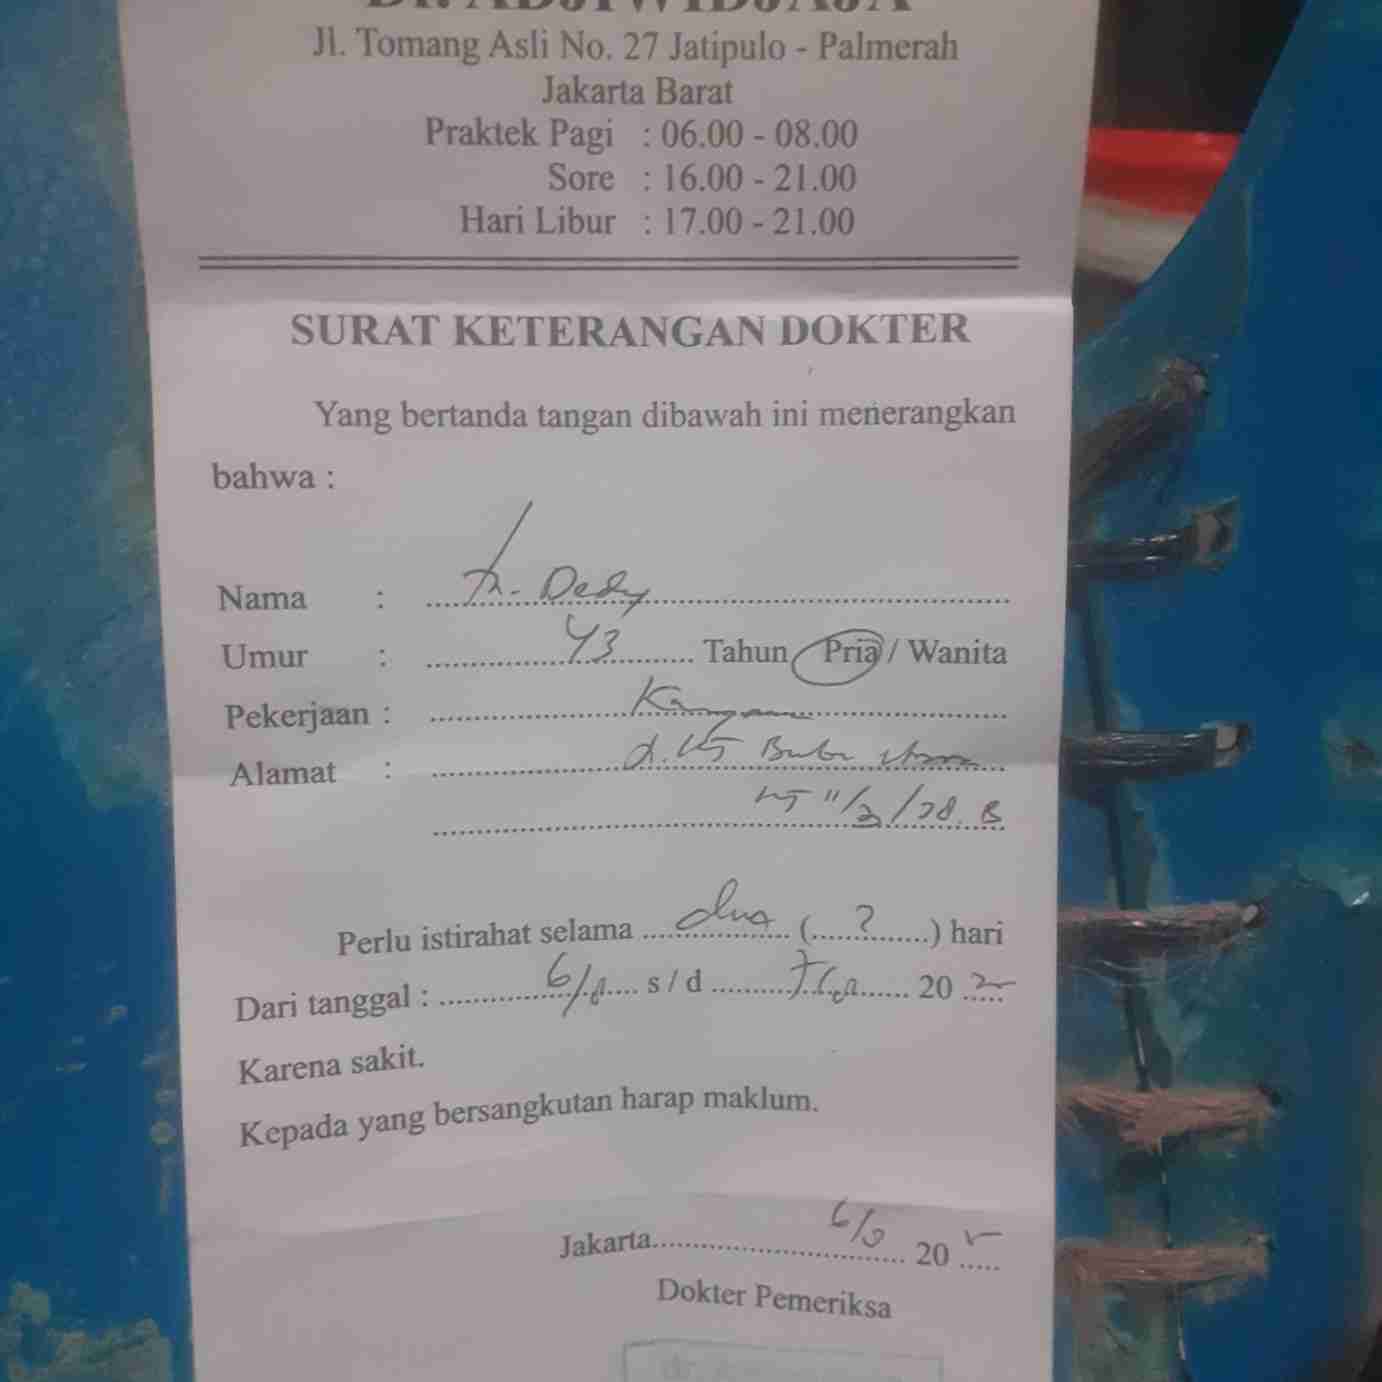 Dr. ADJI WIDJAJA
Jl. Tomang Asli No. 27 Jatipulo - Palmerah
Jakarta Barat
Praktek Pagi : 06.00 - 08.00
Sore : 16.00 - 21.00
Hari Libur : 17.00 - 21.00
SURAT KETERANGAN DOKTER
Yang bertanda tangan dibawah ini menerangkan
bahwa :
Nama : Tn. Dedy
Umur : 43 Tahun Pria / Wanita
Pekerjaan :
Alamat :
Perlu istirahat selama dua (2) hari
Dari tanggal : 6/ s/d 20
Karena sakit.
Kepada yang bersangkutan harap maklum.
Jakarta 6/ 20
Dokter Pemeriksa